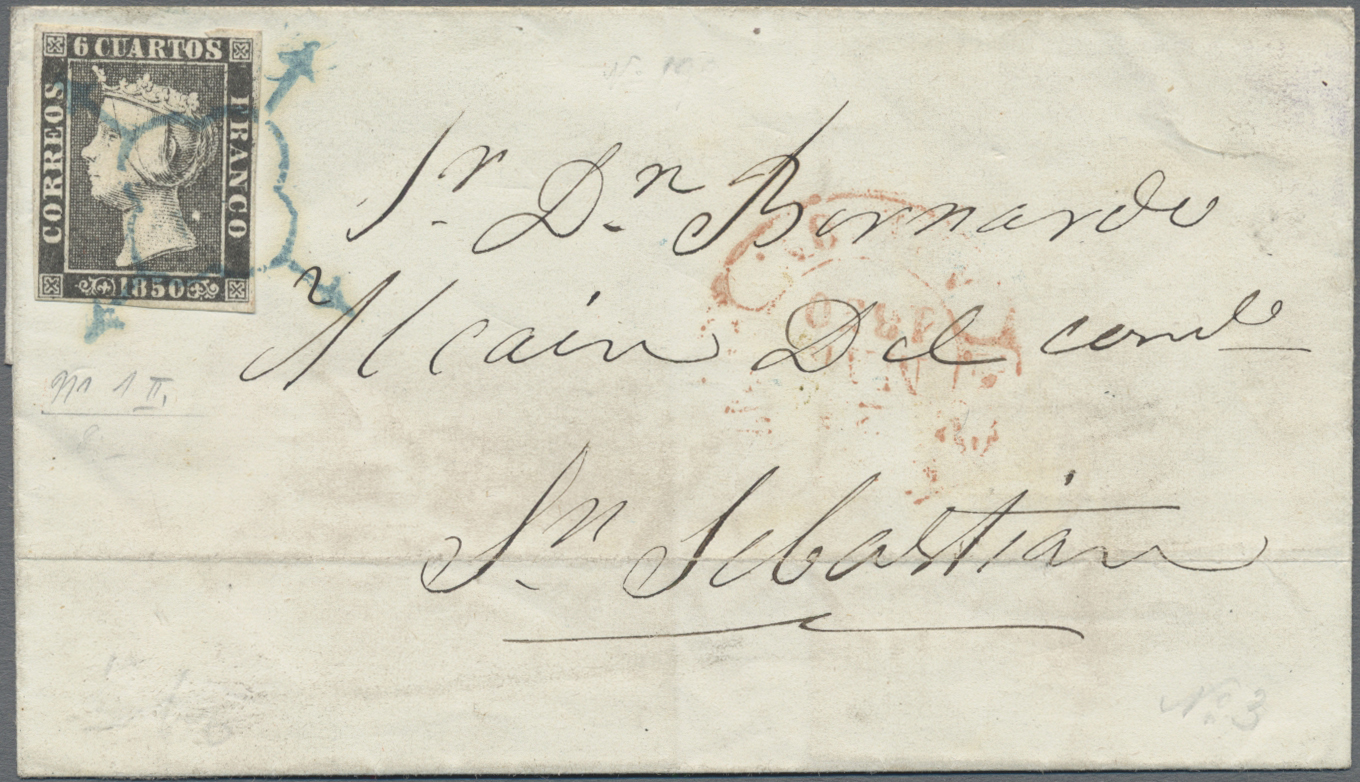 6 CUARTOS
CORREOS
FRANCO
1850
Sr. Dn. Bernardo
Alcain Del comlo
Sn. Sebastian
1850
JUN
Nº 1 II.
Nº. 3